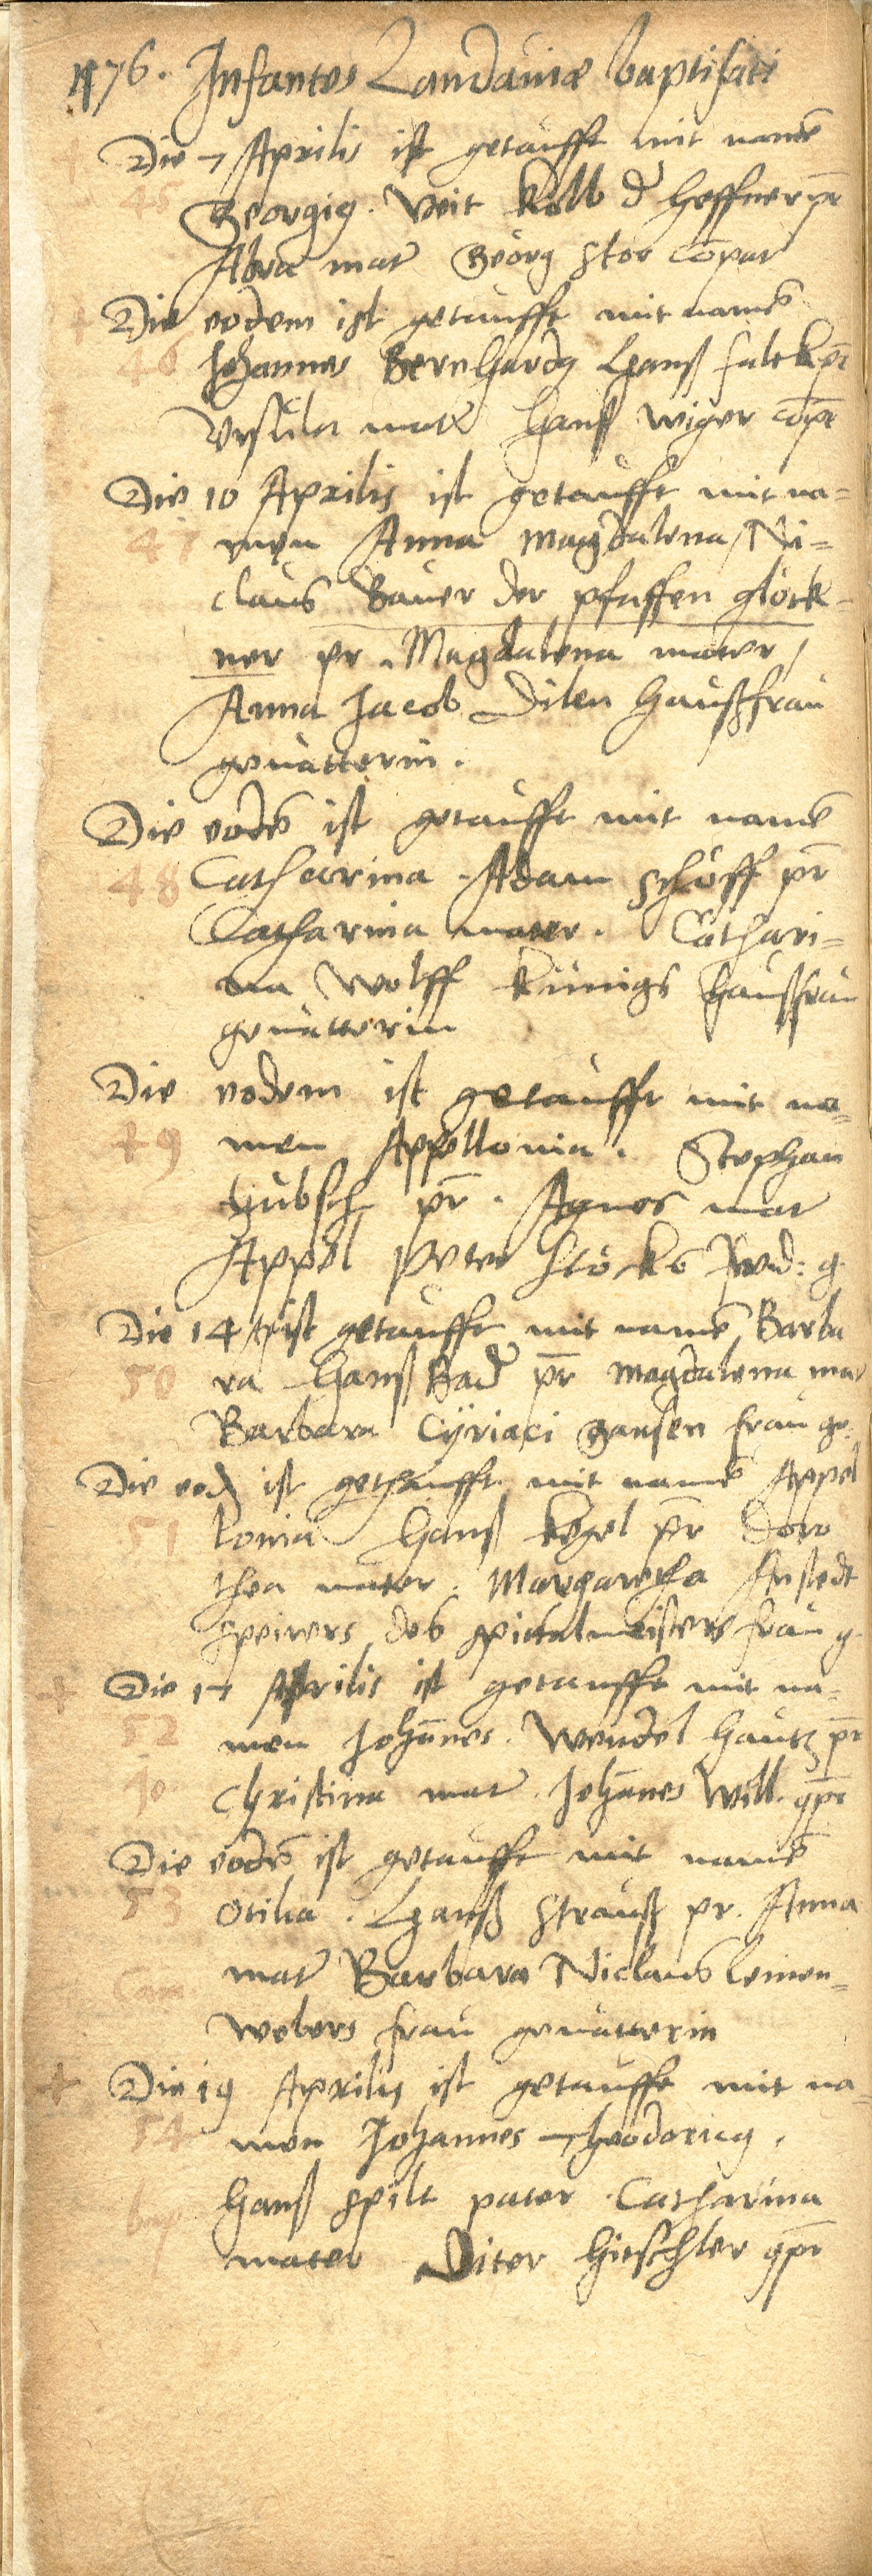 1576. Infantes Landaviæ baptisati
Die 7 Aprilis ist getaufft mit namē
45 Georgiꝰ. Veit Kolb d' Heffner pr̄
mat' Georg Stor cōpat'
Die eodem ist getaufft mit namē
46 Johannes Bernhardꝰ Hanß Falck pr̄
Ursula mat' Hanß Wiger cōpr̄
Die 10 Aprilis ist getaufft mit na=
47 men Anna Magdalena / Ni=
claus Bauer der pfaffen glöck=
ner pr. Magdalena mater /
Anna Jacob Dilen haußfrau
gevatterin.
Die eodē ist getaufft mit namē
48 Catharina. Adam Schöff pr̄
Catharina mater. Cathari=
na Wolff Künigs haußfrau
gevatterin
Die eodem ist getaufft mit na=
49 men Appellonia. Stephan
Hübsch pr̄. Agnes mat'
Appel Peter Stöcks g.
Die 14 ist getaufft mit namē Barba
50 ra Hanß Bad' pr̄ Magdalena mat'
Barbara Cÿriaci Hansen frau ge.
Die eod ist gethaufft mit namē Appel
51 lonia Hanß Kegel pr̄ Doro
thea mater. Margaretha Anstedt
Speirers des spitalmeisters frau g.
Die 17 Aprilis ist getaufft mit na=
52 men Johānes. Wendel Hautz pr̄
Jo. Christina mat' Johānes Will. gpr̄
Die eodē ist getaufft mit namē
53 Otilia. Hanß Strauß pr. Anna
mat' Barbara Niclaus Leinen=
webers frau gevatterin
Die 19 Aprilis ist getaufft mit na=
54 men Johannes Theodoricꝰ.
Hanß Spilt pater. Catharina
mater Diter Hitschler gpr̄